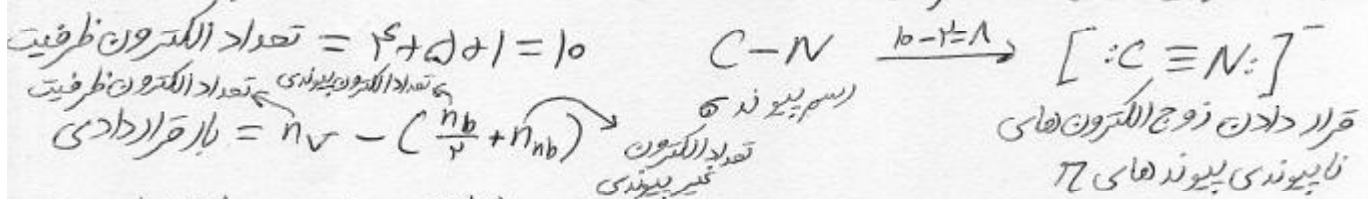 تعداد الکترون ظرفیت = ۴+۵+۱=۱۰ C−N ۱۰−۲=۸ → [:C≡N:]⁻
رسم پیوند σ
قرار دادن زوج الکترون‌های ناپیوندی پیوندهای π
تعداد الکترون ظرفیت تعداد الکترون پیوندی
بار قراردادی = n_v − (n_b/۲ + n_nb)
تعداد الکترون
غیر پیوندی